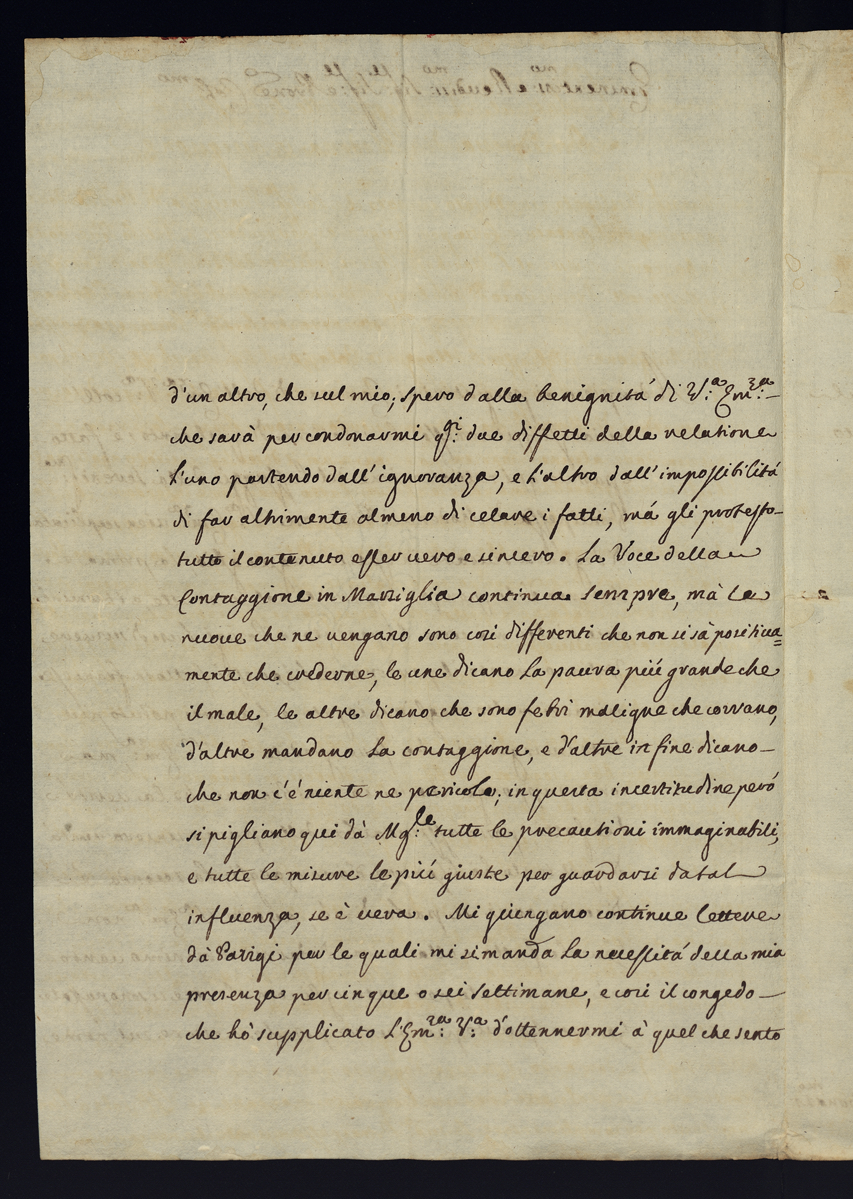 d'un altro, che sul mio; spero dalla benignitá di V.ª Em.za
che sarà per condonarmi q.gi due diffetti della relatione
l'uno partendo dall'ignoranza, e l'altro dall'impossibilitá
di far altrimente almeno di celare i fatti, má gli protesto
tutto il contenuto esser vero e sincero. La Voce della
Contaggione in Marsiglia continua sempre, mà le
nuove che ne vengano sono cosi differenti che non si sà positiva=
mente che crederne, le une dicano la paura piú grande che
il male, le altre dicano che sono febri maligne che corrano,
d'altre mandano la contaggione, e d'altre in fine dicano
che non c'é niente ne pericolo; in questa incertitudine peró
si pigliano qui dà Mg.le tutte le precautioni immaginabili,
e tutte le misure le piú giuste per guardarsi da tal
influenza, se è vera. Mi giungano continue lettere
dà Parigi per le quali mi si manda la necessitá della mia
presenza per cinque o sei settimane, e cosi il congedo
che hò supplicato l'Em.za V.ª d'ottennermi à quel che sento